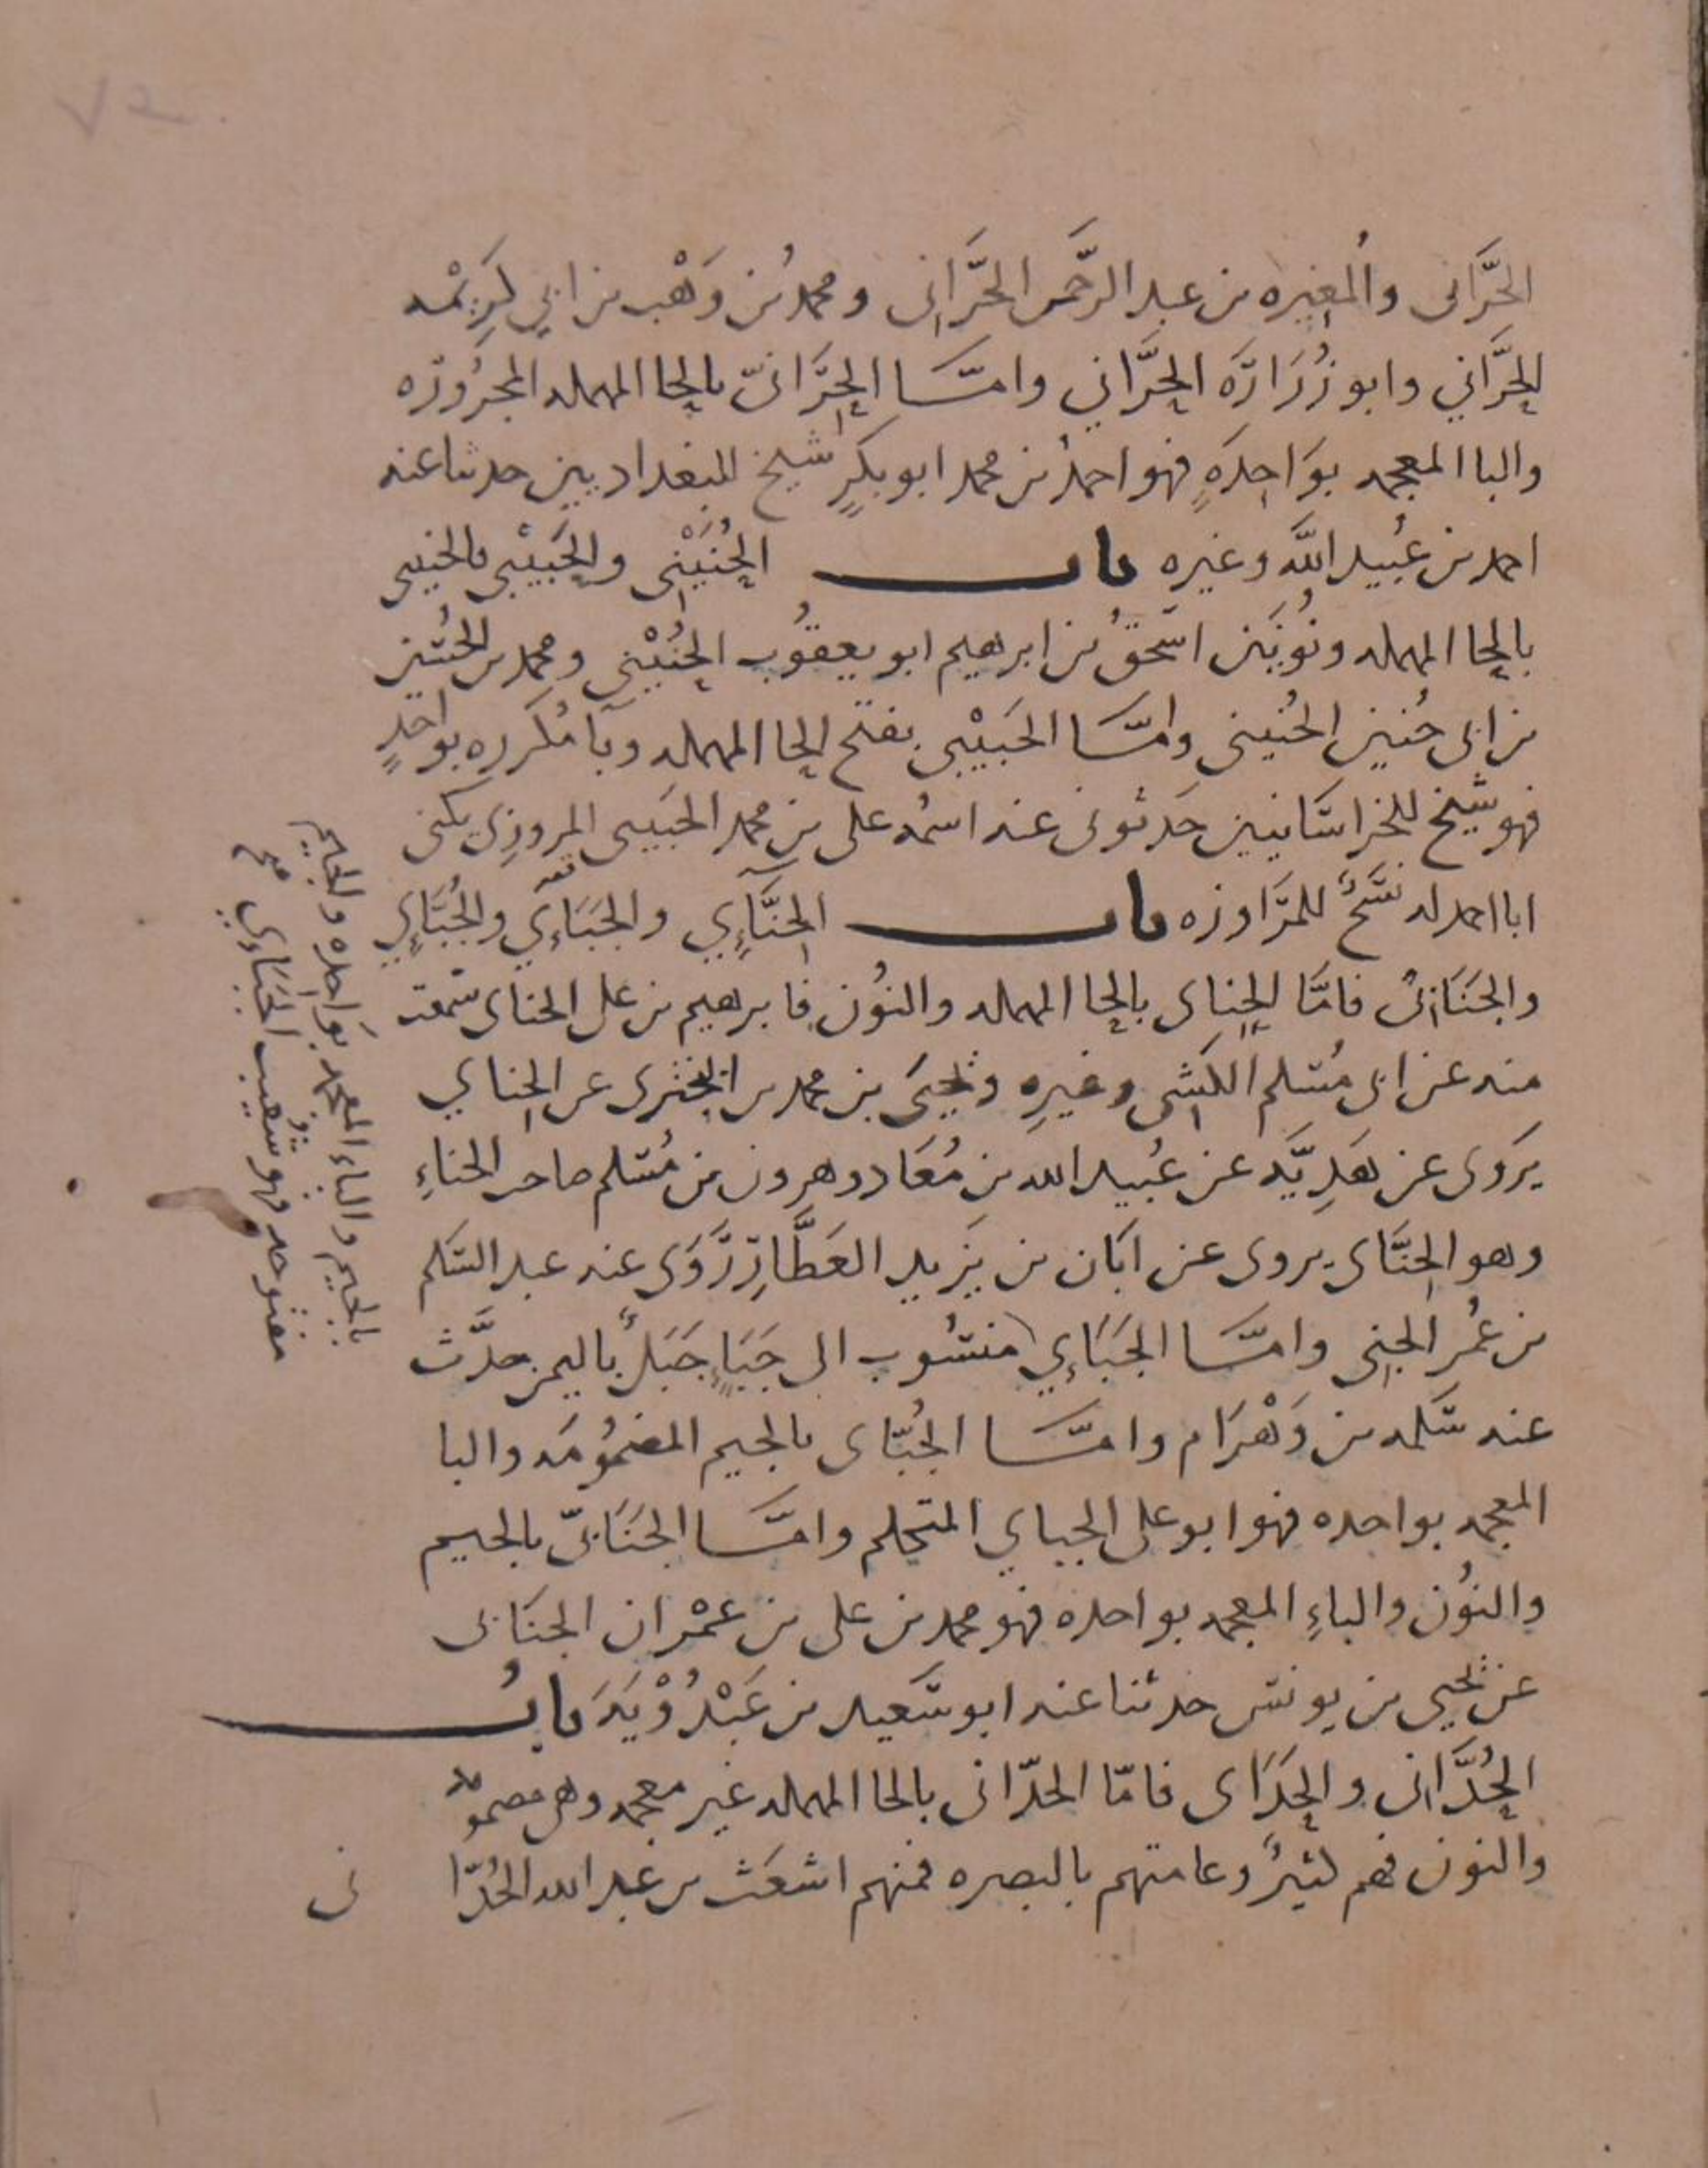 الحَرَّانى والمُغيره بن عبد الرَّحمن الحَرَّانى ومحمدُ بن وَهْب بن ابي كَرِيْمه
الحَرَّاني وابو زُرَارَة الحَرَّاني وامَّا الحِرَّانىّ بالحا المهمله المجرُورَه
والبا المعجمه بوَاحِدَةٍ فهو احمدُ بن محمد ابو بكرٍ شيخ للبغداديين حدثنا عنه
احمد بن عُبيد اللَّه وغيره باب الحُنَيْنى والحَبِيْبى والخبيبى
بالحا المهمله ونُونَين اسحقُ بن ابرهيم ابو يعقُوب الحُنَيْني ومحمد بن الحُسَين
بن ابى حُنين الحُنينى وامَّا الحَبِيْبى بفتح الحا المهمله وبَا مُكَرره بواحدٍ
فهو شيخ للخراسَانيين حَدثونى عنه اسمُه على بن محمد الحَبيبى المروزِى يكنى
ابا احمد له نسَخٌ للمرَاوزه باب الحِنَّآيِي والجَبَآيِي والجُبَّايِي
والجَنَابىُّ فامَّا الحِناى بالحا المهمله والنوُن فابرهيم بن على الحناى سَمعت
منه عن ابى مُسلم الكشى وغيرِه ويحيَى بن محمد بن البخترى الحِناي
يَروى عن هُدبَة عن عُبيد الله بن مُعَاد وهرون بن مُسلم صاحب الحناءِ
وهو الحِنَّاى يروى عن ابَان بن يَزيد العَطَّارِ رَوَى عنه عبد السَلم
بن عُمر الجنى وامَّا الجَبَاءِي منسُوب الى جَبَاءٍ جَبَلٌ باليمن حدَّث
عنه سَلمه بن وَهْرَام وامَّا الجُبّاى بالجيم المضمُومَه والبا
المعجمه بواحده فهو ابو على الجباي المتكلم وامَّا الجَنَابىّ بالجيم
والنوُن والباءِ المعجمه بواحده فهو محمد بن على بن عمْران الجنَابى
عن يحيى بن يونس حدثنا عنه ابو سَعيد بن عَبْدُوْيَه بابُ
الحُدَّانى والحِدَاى فامّا الحدّانى بالحا المهمله غير معجمه وهى مضموله
والنون فهم كثيرٌ وعامتهم بالبصره فمنهم اشعَث بن عبد الله الحُدّا نى
بالجيم والباء المعجمه بوَاحِده والجيم
مفتوحه فهو شُعَيب الجَبَاءِي صح